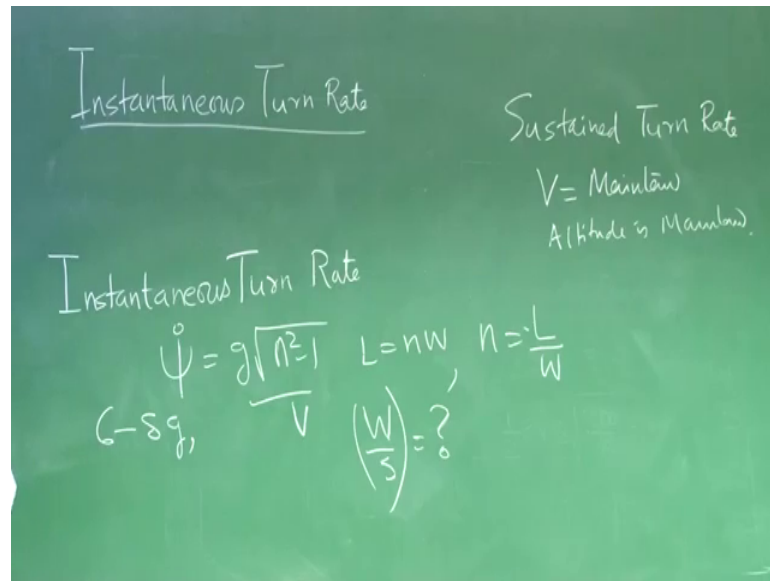 Instantaneous Turn Rate
Sustained Turn Rate
V = Maintain
Altitude is Maintained.
Instantaneous Turn Rate
ψ̇ = g√(n²-1) / V
L = nW, n = L/W
6-8g,
(W/S) = ?